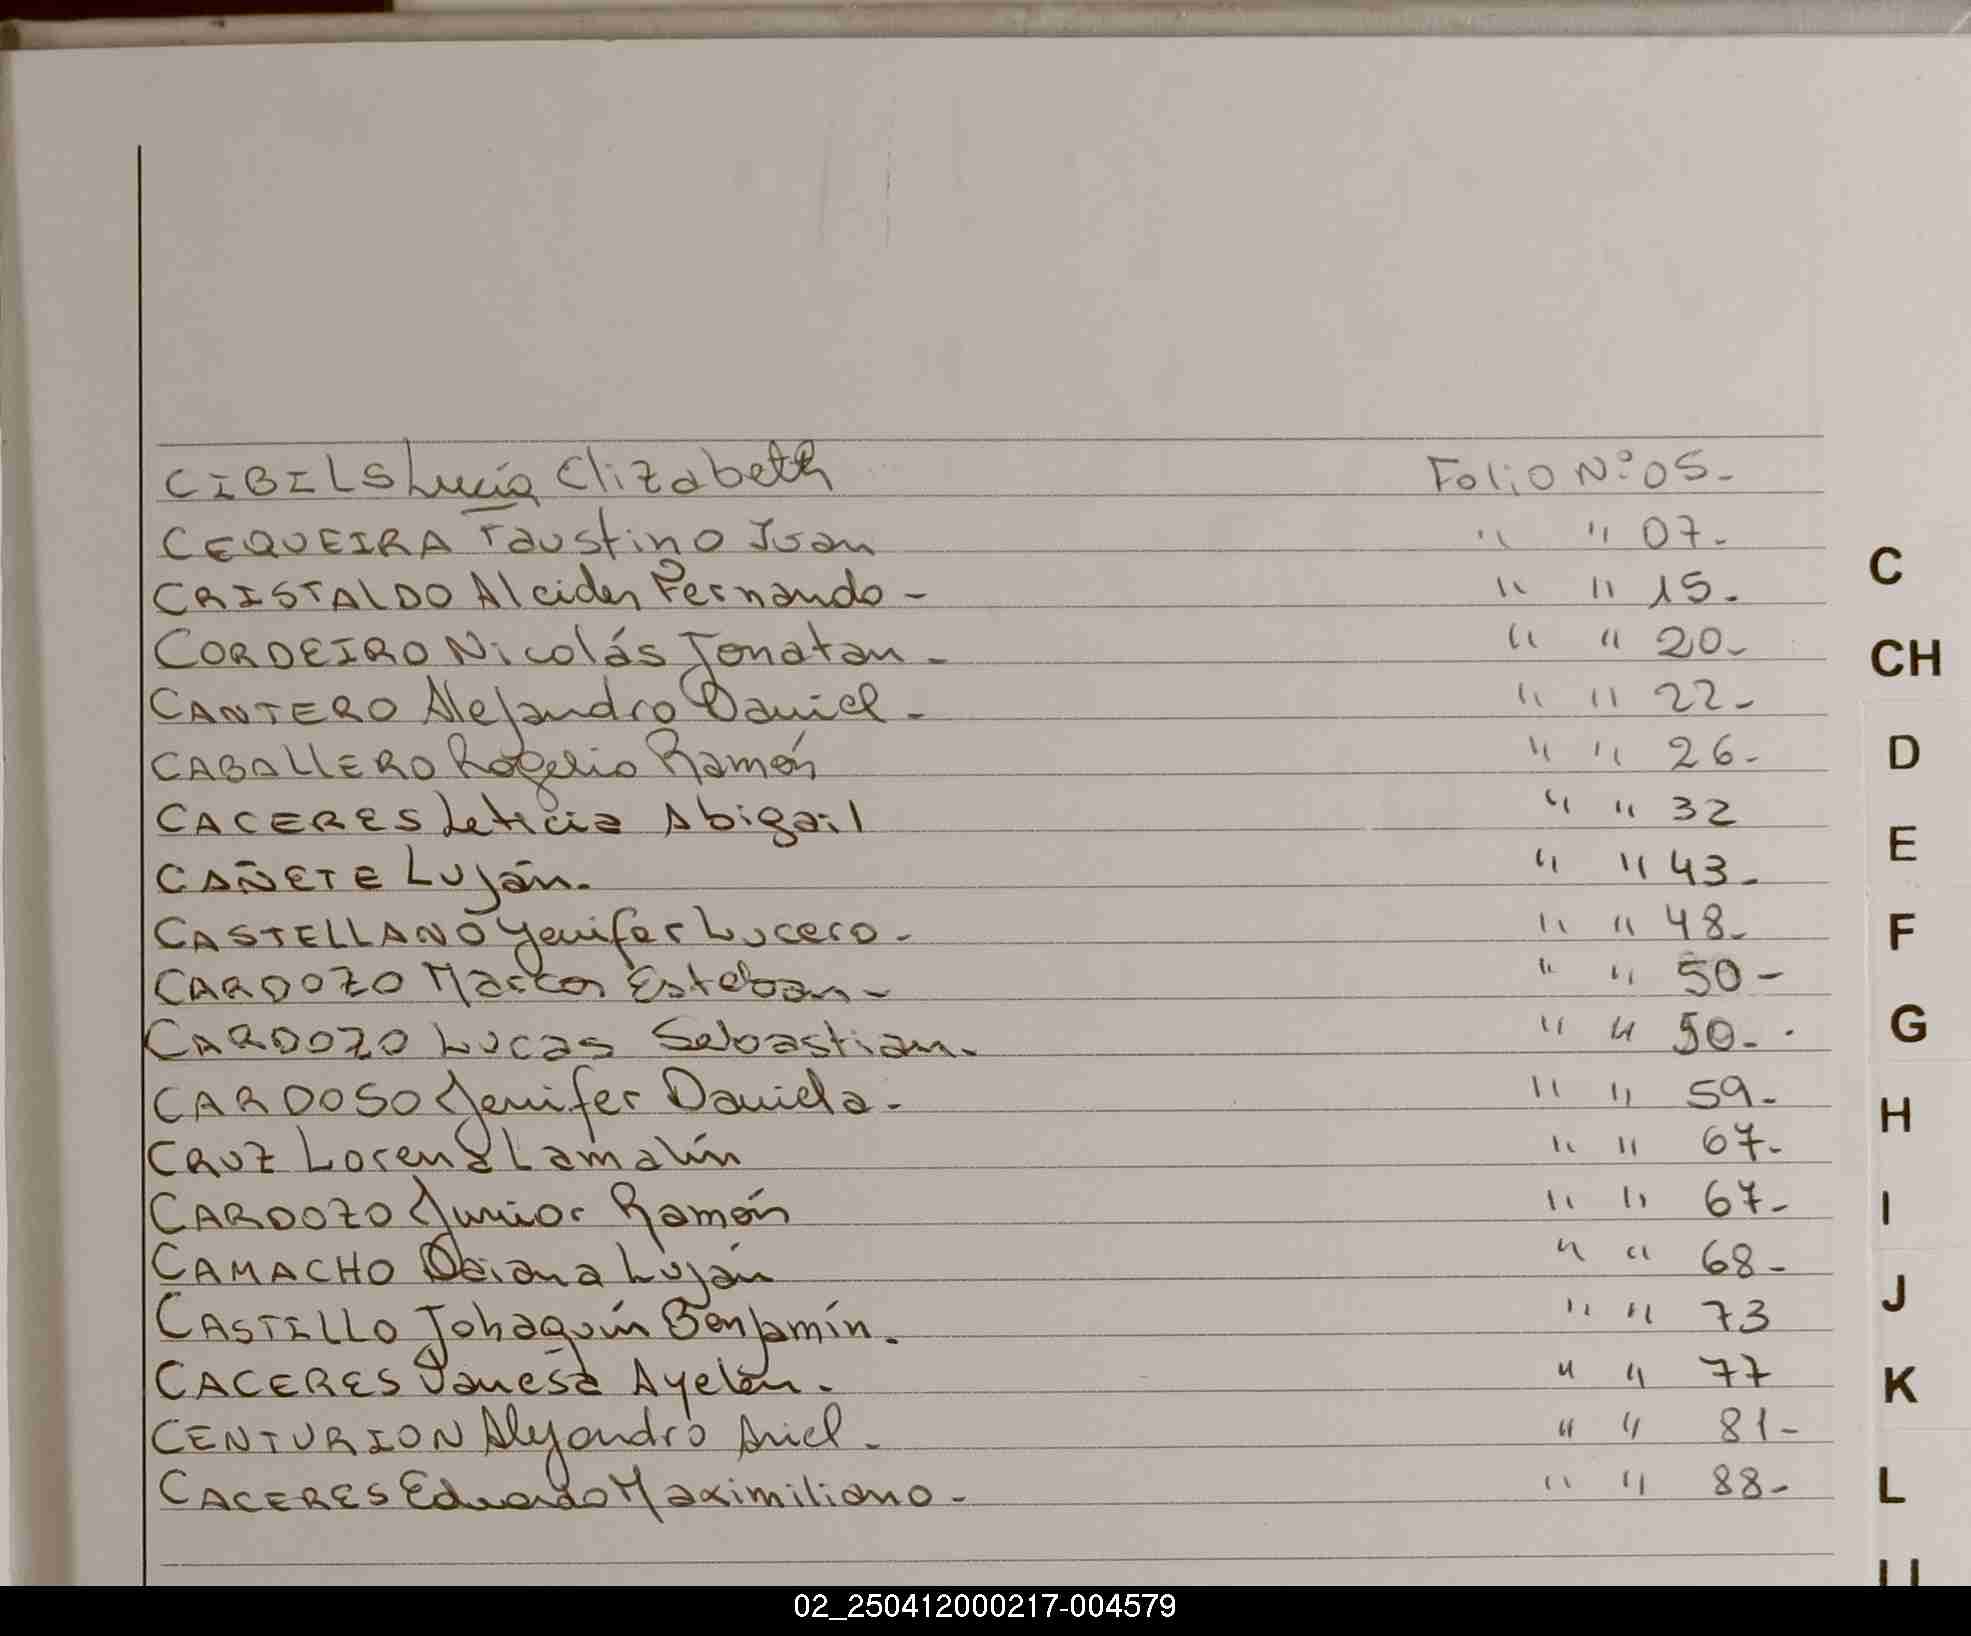 CIBILS Lucía Elizabeth Folio Nº 05-
CEQUEIRA Faustino Juan " " 07-
CRISTALDO Alcides Fernando - " " 15-
CORDEIRO Nicolás Jonatan - " " 20-
CANTERO Alejandro Daniel - " " 22-
CABALLERO Rogelio Ramón " " 26-
CACERES Leticia Abigail " " 32
CAÑETE Luján. " " 43-
CASTELLANO Yenifer Lucero - " " 48-
CARDOZO Marcos Esteban - " " 50-
CARDOZO Lucas Sebastian. " " 50-
CARDOSO Jenifer Daniela - " " 59-
CRUZ Lorena Lamalín " " 67-
CARDOZO Junior Ramón " " 67-
CAMACHO Daiana Luján " " 68-
CASTILLO Johaquín Benjamín. " " 73
CACERES Vanesa Ayelén. " " 77
CENTURION Alejandro Ariel - " " 81-
CACERES Eduardo Maximiliano - " " 88-
C
CH
D
E
F
G
H
I
J
K
L
02_250412000217-004579